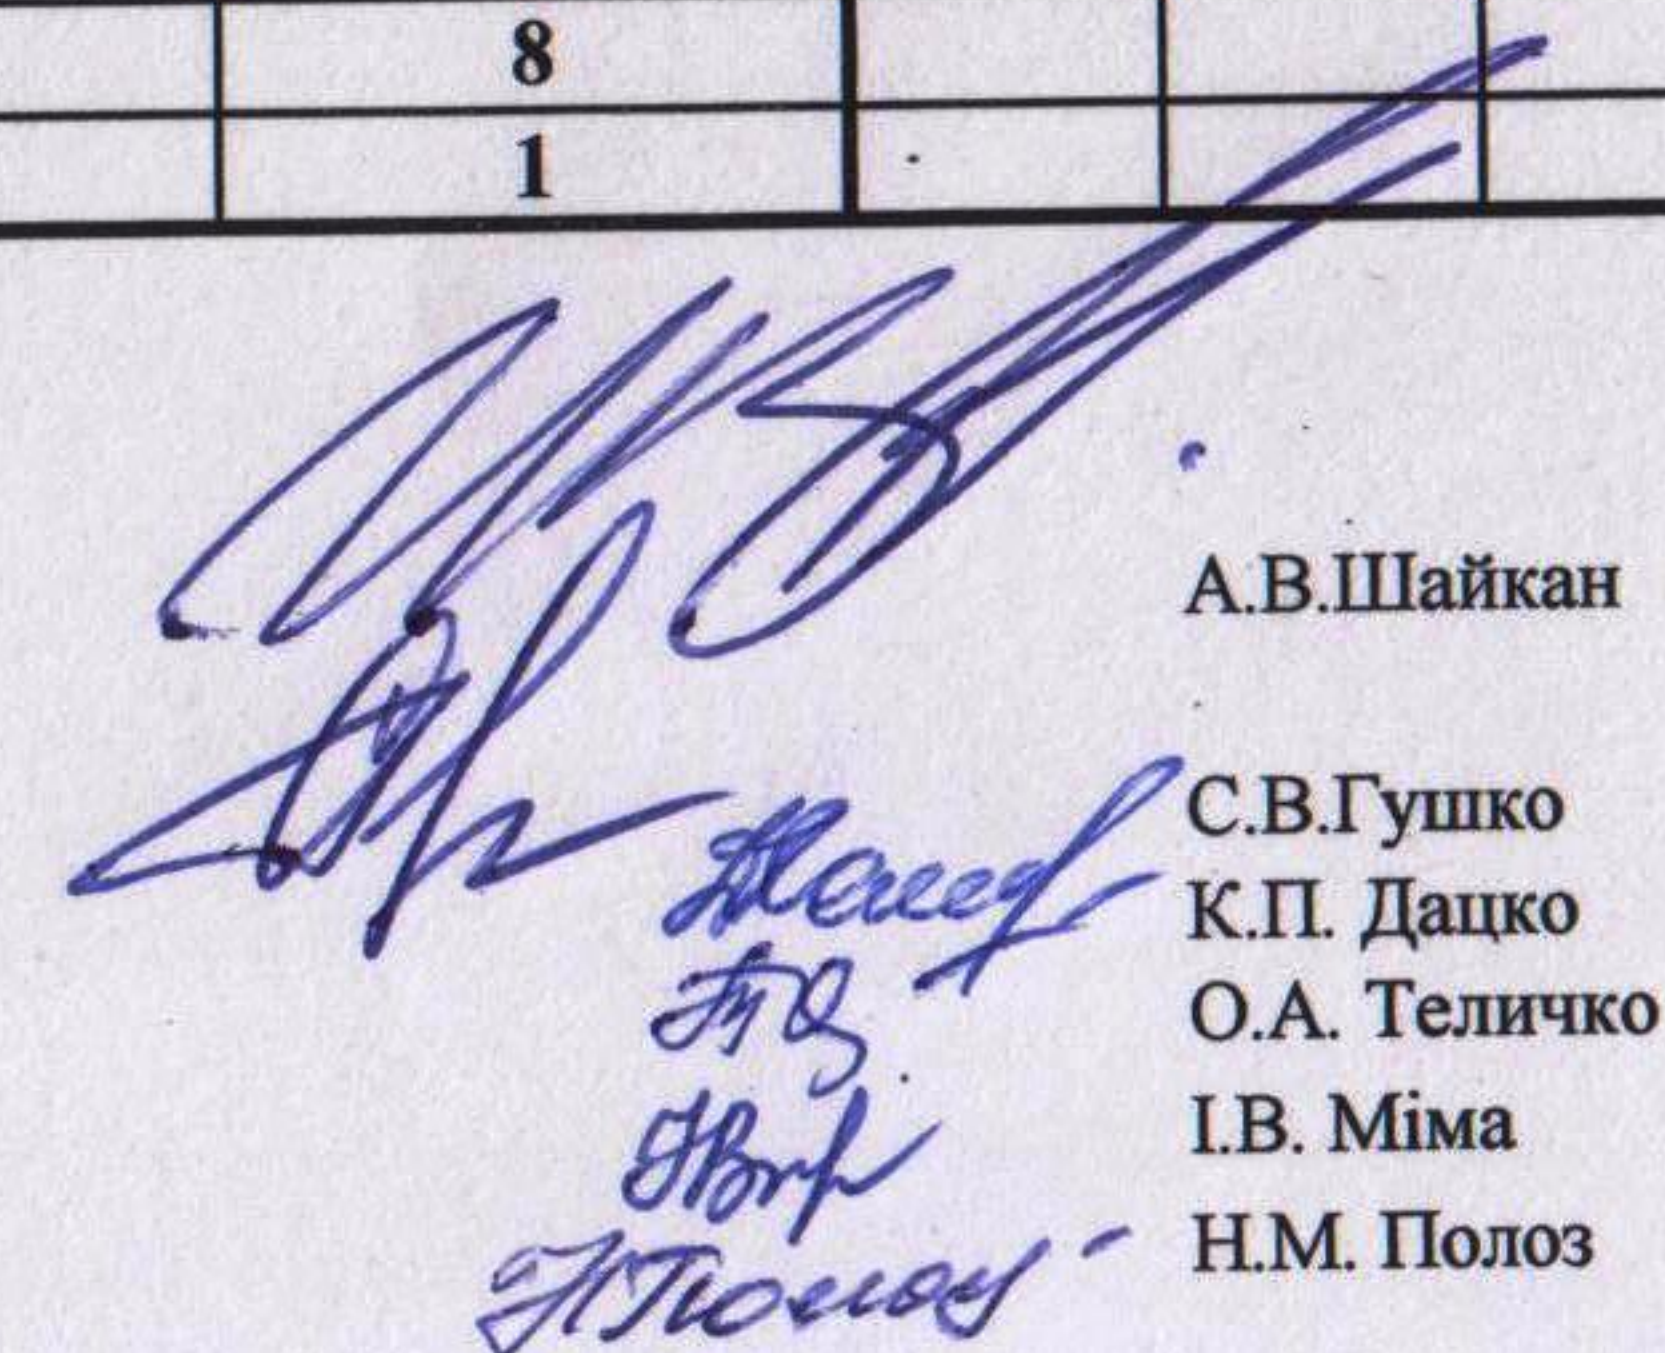 8
1
А.В.Шайкан
С.В.Гушко
К.П. Дацко
О.А. Теличко
І.В. Міма
Н.М. Полоз